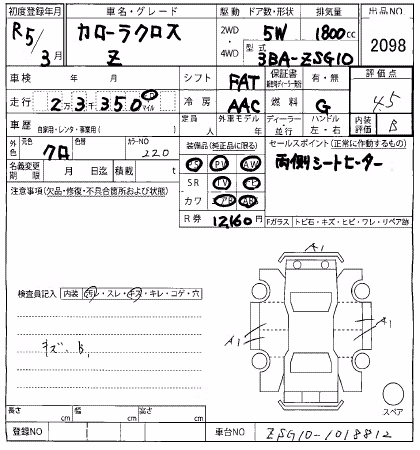 初度登録年月 車名・グレード 駆動 ドア数・形状 排気量 出品NO
R5/3月 カローラクロス Z 2WD・4WD 5W 1800cc 2098
型式 3BA-ZSG10
車検 年 月 シフト FAT 保証書 有・無 評価点
走行 2万3千350 Km マイル 冷房 AAC 燃料 G 4.5
車歴 自家用・レンタ・事業用( ) 定員 人 外車モデル 年 ディーラー・並行 ハンドル 左・右 内装評価 B
外色 元色 クロ 色替 カラーNO 220 装備品(純正品に限る) セールスポイント(正常に作動するもの)
PS PW AW 両側シートヒーター
名義変更期限 月 日迄 積載 t SR TV
注意事項(欠品・修復・不具合箇所および状態) カワ
R券 12,160円 Fガラス(トビ石・キズ・ヒビ・ワレ・リペア跡)
A1
検査員記入 内装(汚レ・スレ・キズ・キレ・コゲ・穴)
A1
キズ、B1
A1
A1
スペア
長さ cm 幅 cm 高さ cm
登録NO 車台NO ZSG10-1018812